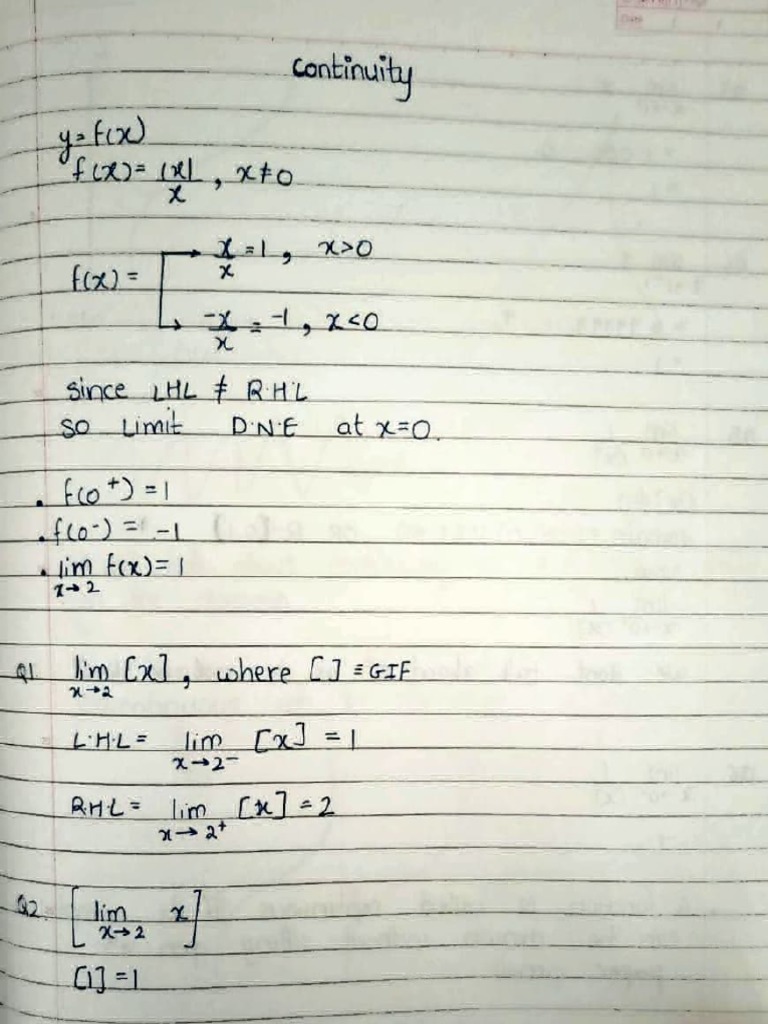 Date
continuity
y=f(x)
f(x)=|x|/x, x≠0
f(x)= x/x=1, x>0
-x/x=-1, x<0
since LHL ≠ R.H.L
so Limit D.N.E at x=0.
. f(0⁺)=1
. f(0⁻)=-1
. lim x→2 f(x)=1
Q1 lim x→2 [x], where [.] ≡ GIF
L.H.L= lim x→2⁻ [x]=1
R.H.L= lim x→2⁺ [x]=2
Q2. [lim x→2 x]
[1]=1